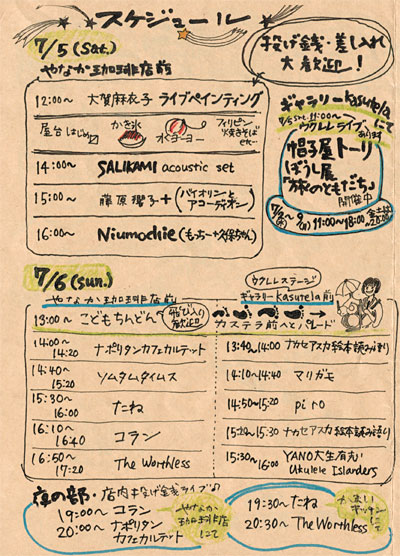 スケジュール
7/5 (Sat.)
やなか珈琲店前
投げ銭・差し入れ
大歓迎!
12:00〜 大賀麻衣子 ライブペインティング
屋台はじめ かき氷 水ヨーヨー フィリピン
焼きそば
etc…
14:00〜 SALIKAMI acoustic set
15:00〜 藤原瓔子+(バイオリンと
アコーディオン)
16:00〜 Niumochie (もっちー+久保ちゃん)
ギャラリーkasuteraにて
7/5 sat. 11:00〜
ウクレレライブ
あります
帽子屋トーリ
ぼうし展
「旅のともだち」
開催中
11:00〜18:00
7/6 (sun.)
やなか珈琲店前
13:00〜 こどもちんどん〜
飛び入り
歓迎
カステラ前へとパレード
ウクレレステージ
ギャラリーkasutera前
14:00〜
14:20 ナポリタンカフェカルテット
14:40〜
15:20 ソムタムタイムス
15:30〜
16:00 たね
16:10〜
16:40 コラン
16:50〜
17:20 The Worthless
13:40〜14:00 ナカセアスカ絵本読み語り
14:10〜14:40 マリガモ
14:50〜15:20 piro
15:20〜15:30 ナカセアスカ絵本読み語り
15:30〜
16:00 YANO大生有志
Ukulele Islanders
夜の部・店内投げ銭ライブ♪
19:00〜 コラン
20:00〜 ナポリタン
カフェカルテット
やなか
珈琲店
にて
19:30〜 たね
20:30〜 The Worthless
キッチン
にて